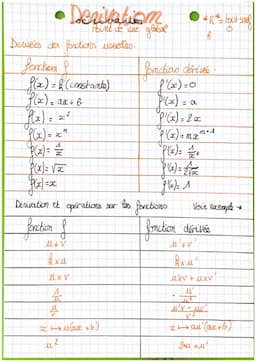 Dérivation
Point de vue global
Dérivées des fonctions usuelles:
fonction f fonction dérivée
f(x) = k (constante) f'(x) = 0
f(x) = ax + b f'(x) = a
f(x) = x² f'(x) = 2x
f(x) = xⁿ f'(x) = nxⁿ⁻¹
f(x) = 1/x
f(x) = √x f'(x) = 1/2√x
f(x) = x f'(x) = 1
Dérivation et opérations sur les fonctions Voir exemple →
fonction f fonction dérivée
u + v u' + v'
k × u k × u'
u × v u'v + uv'
u/v u'v - uv'/v²
x ↦ u(ax + b) x ↦ au'(ax + b)
u² 2uu'